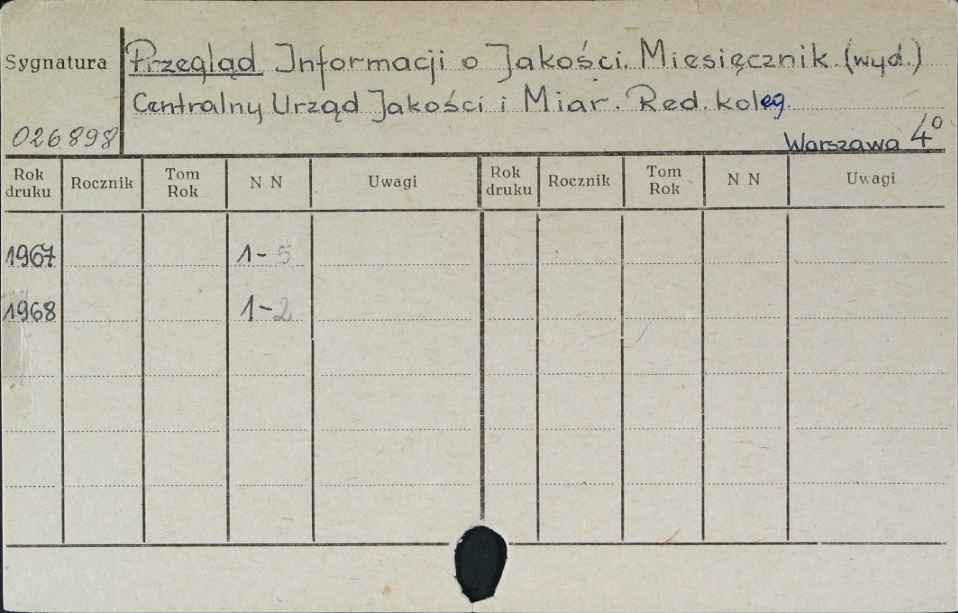 Sygnatura
Przegląd Informacji o Jakości. Miesięcznik. (wyd.)
Centralny Urząd Jakości i Miar. Red. koleg.
026898
Warszawa 4°
Rok druku Rocznik Tom Rok N N Uwagi Rok druku Rocznik Tom Rok N N Uwagi
1967 1-5
1968 1-2